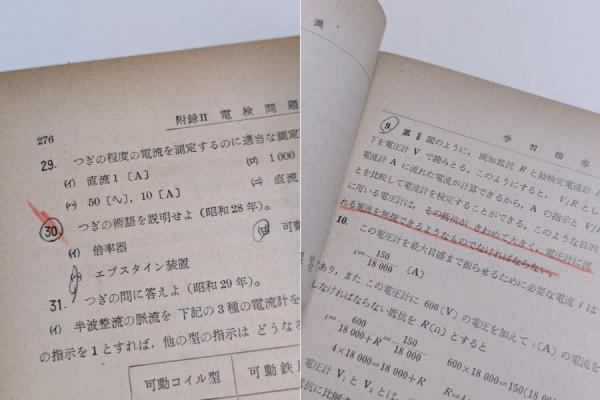 276
附録II 電検問題
29. つぎの程度の電流を測定するのに適当な測定
(イ) 直流1〔A〕
(ロ) 1000
(ハ) 50〔~〕, 10〔A〕
(ニ) 直流
30. つぎの術語を説明せよ(昭和28年)。
(イ) 倍率器
(ロ) 可動
エプスタイン装置
31. つぎの問に答えよ(昭和29年)。
(イ) 半波整流の脈流を下記の3種の電流計を
の指示を1とすれば, 他の型の指示はどうなる
可動コイル型
可動鉄
測
学習指導
9. 第 図のように, 既知抵抗 R と被検電流計
下を電圧計 V で読みとる。このようにすると, V/R とし
電流計 A に流れた電流が計算できるから, A の指示と V/R
とを比較して電流計を検定することができる。このような目的
に用いる電圧計は, その抵抗が, きわめて大きく, 電圧計に流
れる電流を無視できるようなものでなければならない。
10. この電圧計を最大目盛まで振らせるために必要な電流 i は
i=150/18000〔A〕
であり, また この電圧計に 600〔V〕の電圧を加えて i〔A〕の電流を
しなければならない抵抗を R〔Ω〕とすると
i=600/18000+R=150/18000
600×18000=150(18
4×18000=18000+R
電圧計 V₁ と V₂ とは,
抵抗に比例す